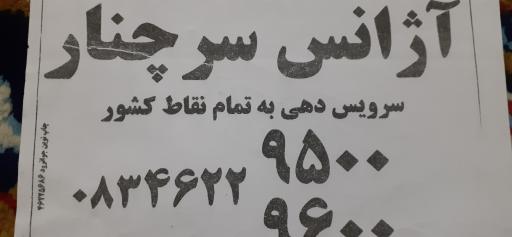 آژانس سرچنار
سرویس دهی به تمام نقاط کشور
۹۵۰۰
۰۸۳۴۶۲۲
۹۶۰۰
چاپ نوین جوانرود ۴۶۲۲۵۶۸۶